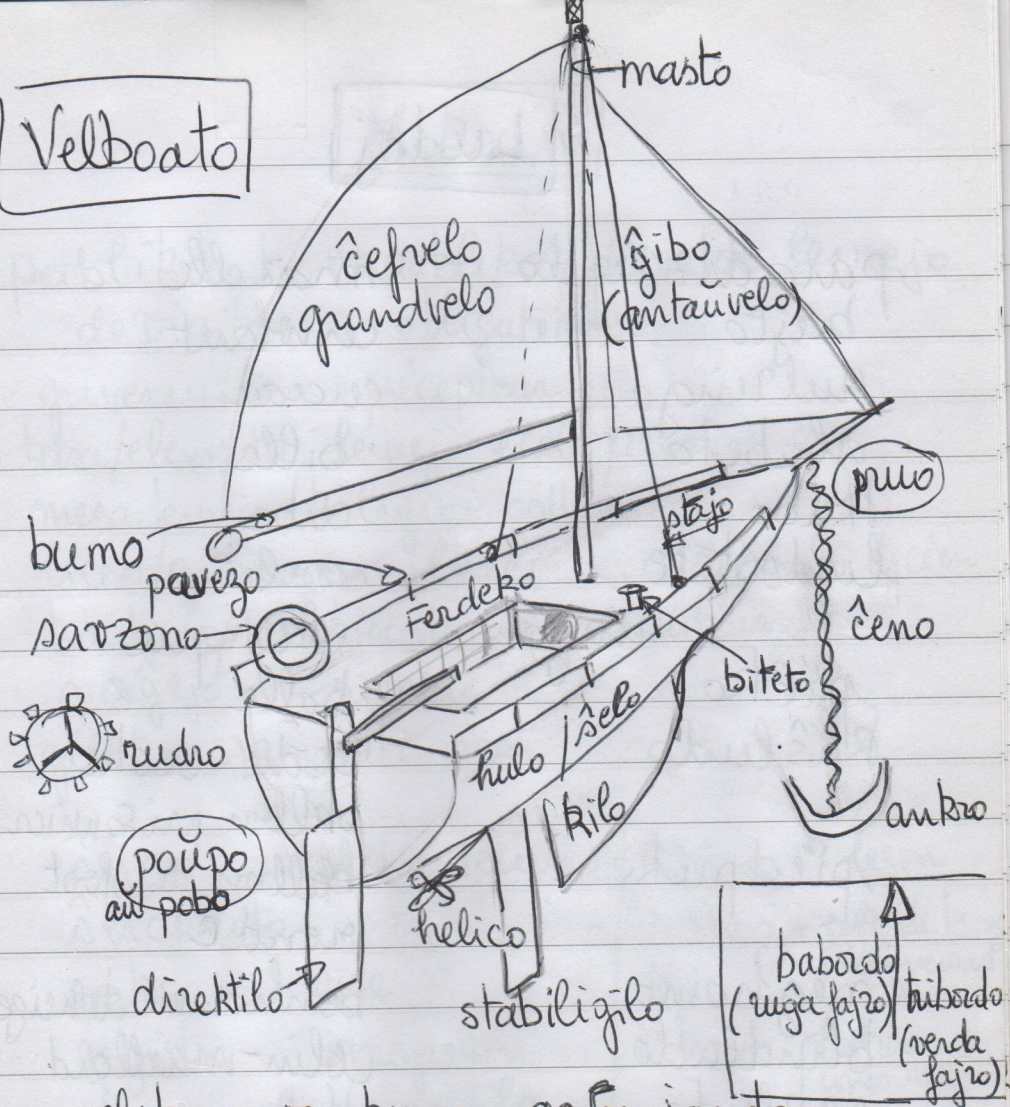 Velboato
masto
ĉefvelo
grandvelo
ĝibo
(antaŭvelo)
pruo
stajo
bumo
pavezo
Ferdeko
savzono
ĉeno
biteto
rudro
hulo/ŝelo
kilo
ankro
poŭpo
aŭ pobo
helico
direktilo
stabiligilo
babordo
(ruĝa fajro)
tribordo
(verda
fajro)